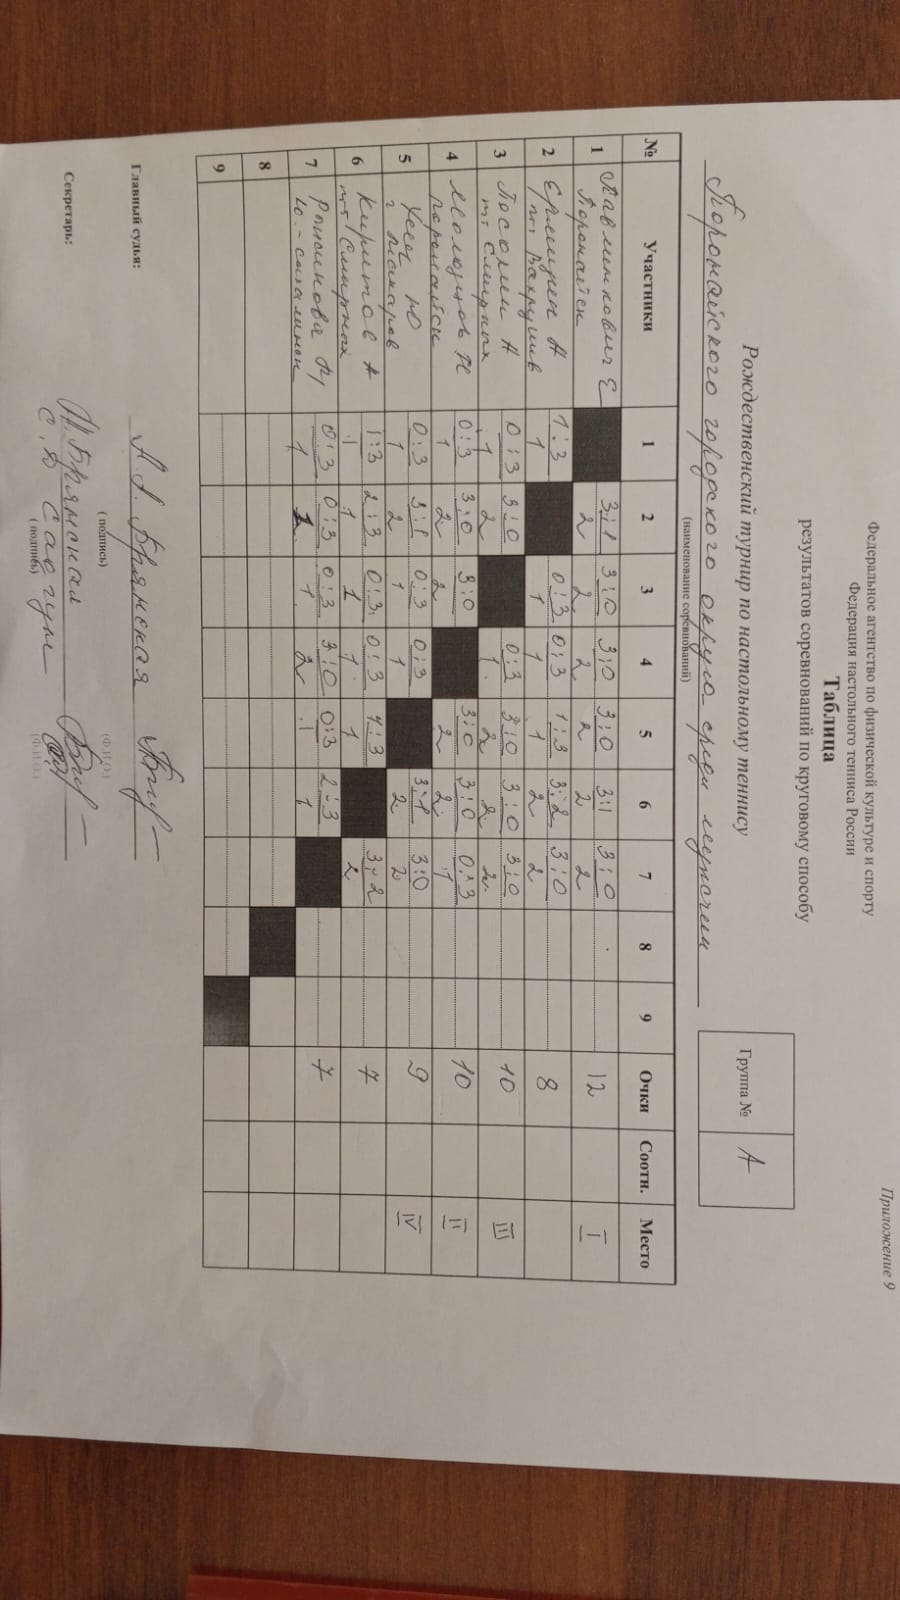 Приложение 9
Федеральное агентство по физической культуре и спорту
Федерация настольного тенниса России
Таблица
результатов соревнований по круговому способу
Группа № А
Рождественский турнир по настольному теннису
Поронайского городского округа среди мужчин
(наименование соревнований)
№ Участники 1 2 3 4 5 6 7 8 9 Очки Соотн. Место
1 Павлинкович Е 3:1 3:0 3:0 3:0 3:1 3:0 12 I
Поронайск 2 2 2 2 2 2
2 А 1:3 0:3 0:3 1:3 3:2 3:0 8
пгт Вахрушев 1 1 1 1 2 2
3 А 0:3 3:0 0:3 3:0 3:0 3:0 10 III
пгт Смирных 1 2 1 2 2 2
4 0:3 3:0 3:0 3:0 3:0 0:3 10 II
Поронайск 1 2 2 2 2 1
5 Ю 0:3 3:1 0:3 0:3 3:1 3:0 9 IV
г Макаров 1 2 1 1 2 2
6 А 1:3 2:3 0:3 0:3 1:3 3:2 7
пгт Смирных 1 1 1 1 1 2
7 0:3 0:3 0:3 3:0 0:3 2:3 7
Ю-Сахалинск 1 1 1 2 1 1
8
9
Главный судья: Брянская
(подпись) (Ф.И.О.)
Секретарь: Брянская
(подпись) (Ф.И.О.)